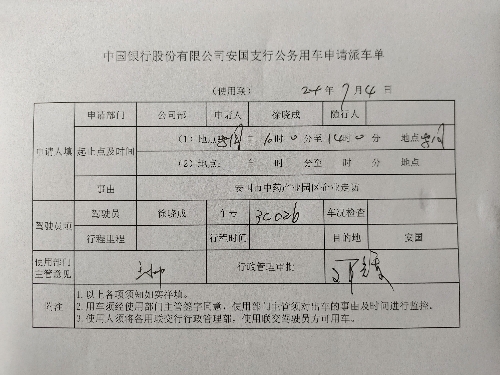 中国银行股份有限公司安国支行公务用车申请派车单
（使用联） 24年7月4日
申请人填 申请部门 公司部 申请人 徐晓成 随行人
起止点及时间 （1）地点 安国 午 时0分至14时0分 地点 安国
（2）地点 午 时 分至 时 分 地点
事由 安国市中药产业园区企业走访
驾驶员填 驾驶员 徐晓成 车号 3C026 车况检查
行程里程 行程时间 目的地 安国
使用部门主管意见 行政管理审批
附注 1. 以上各项须知如实详填。
2. 用车须经使用部门主管签字同意，使用部门主管须对出车的事由及时间进行监控。
3. 使用人须将各用联交行行政管理部，使用联交驾驶员方可用车。